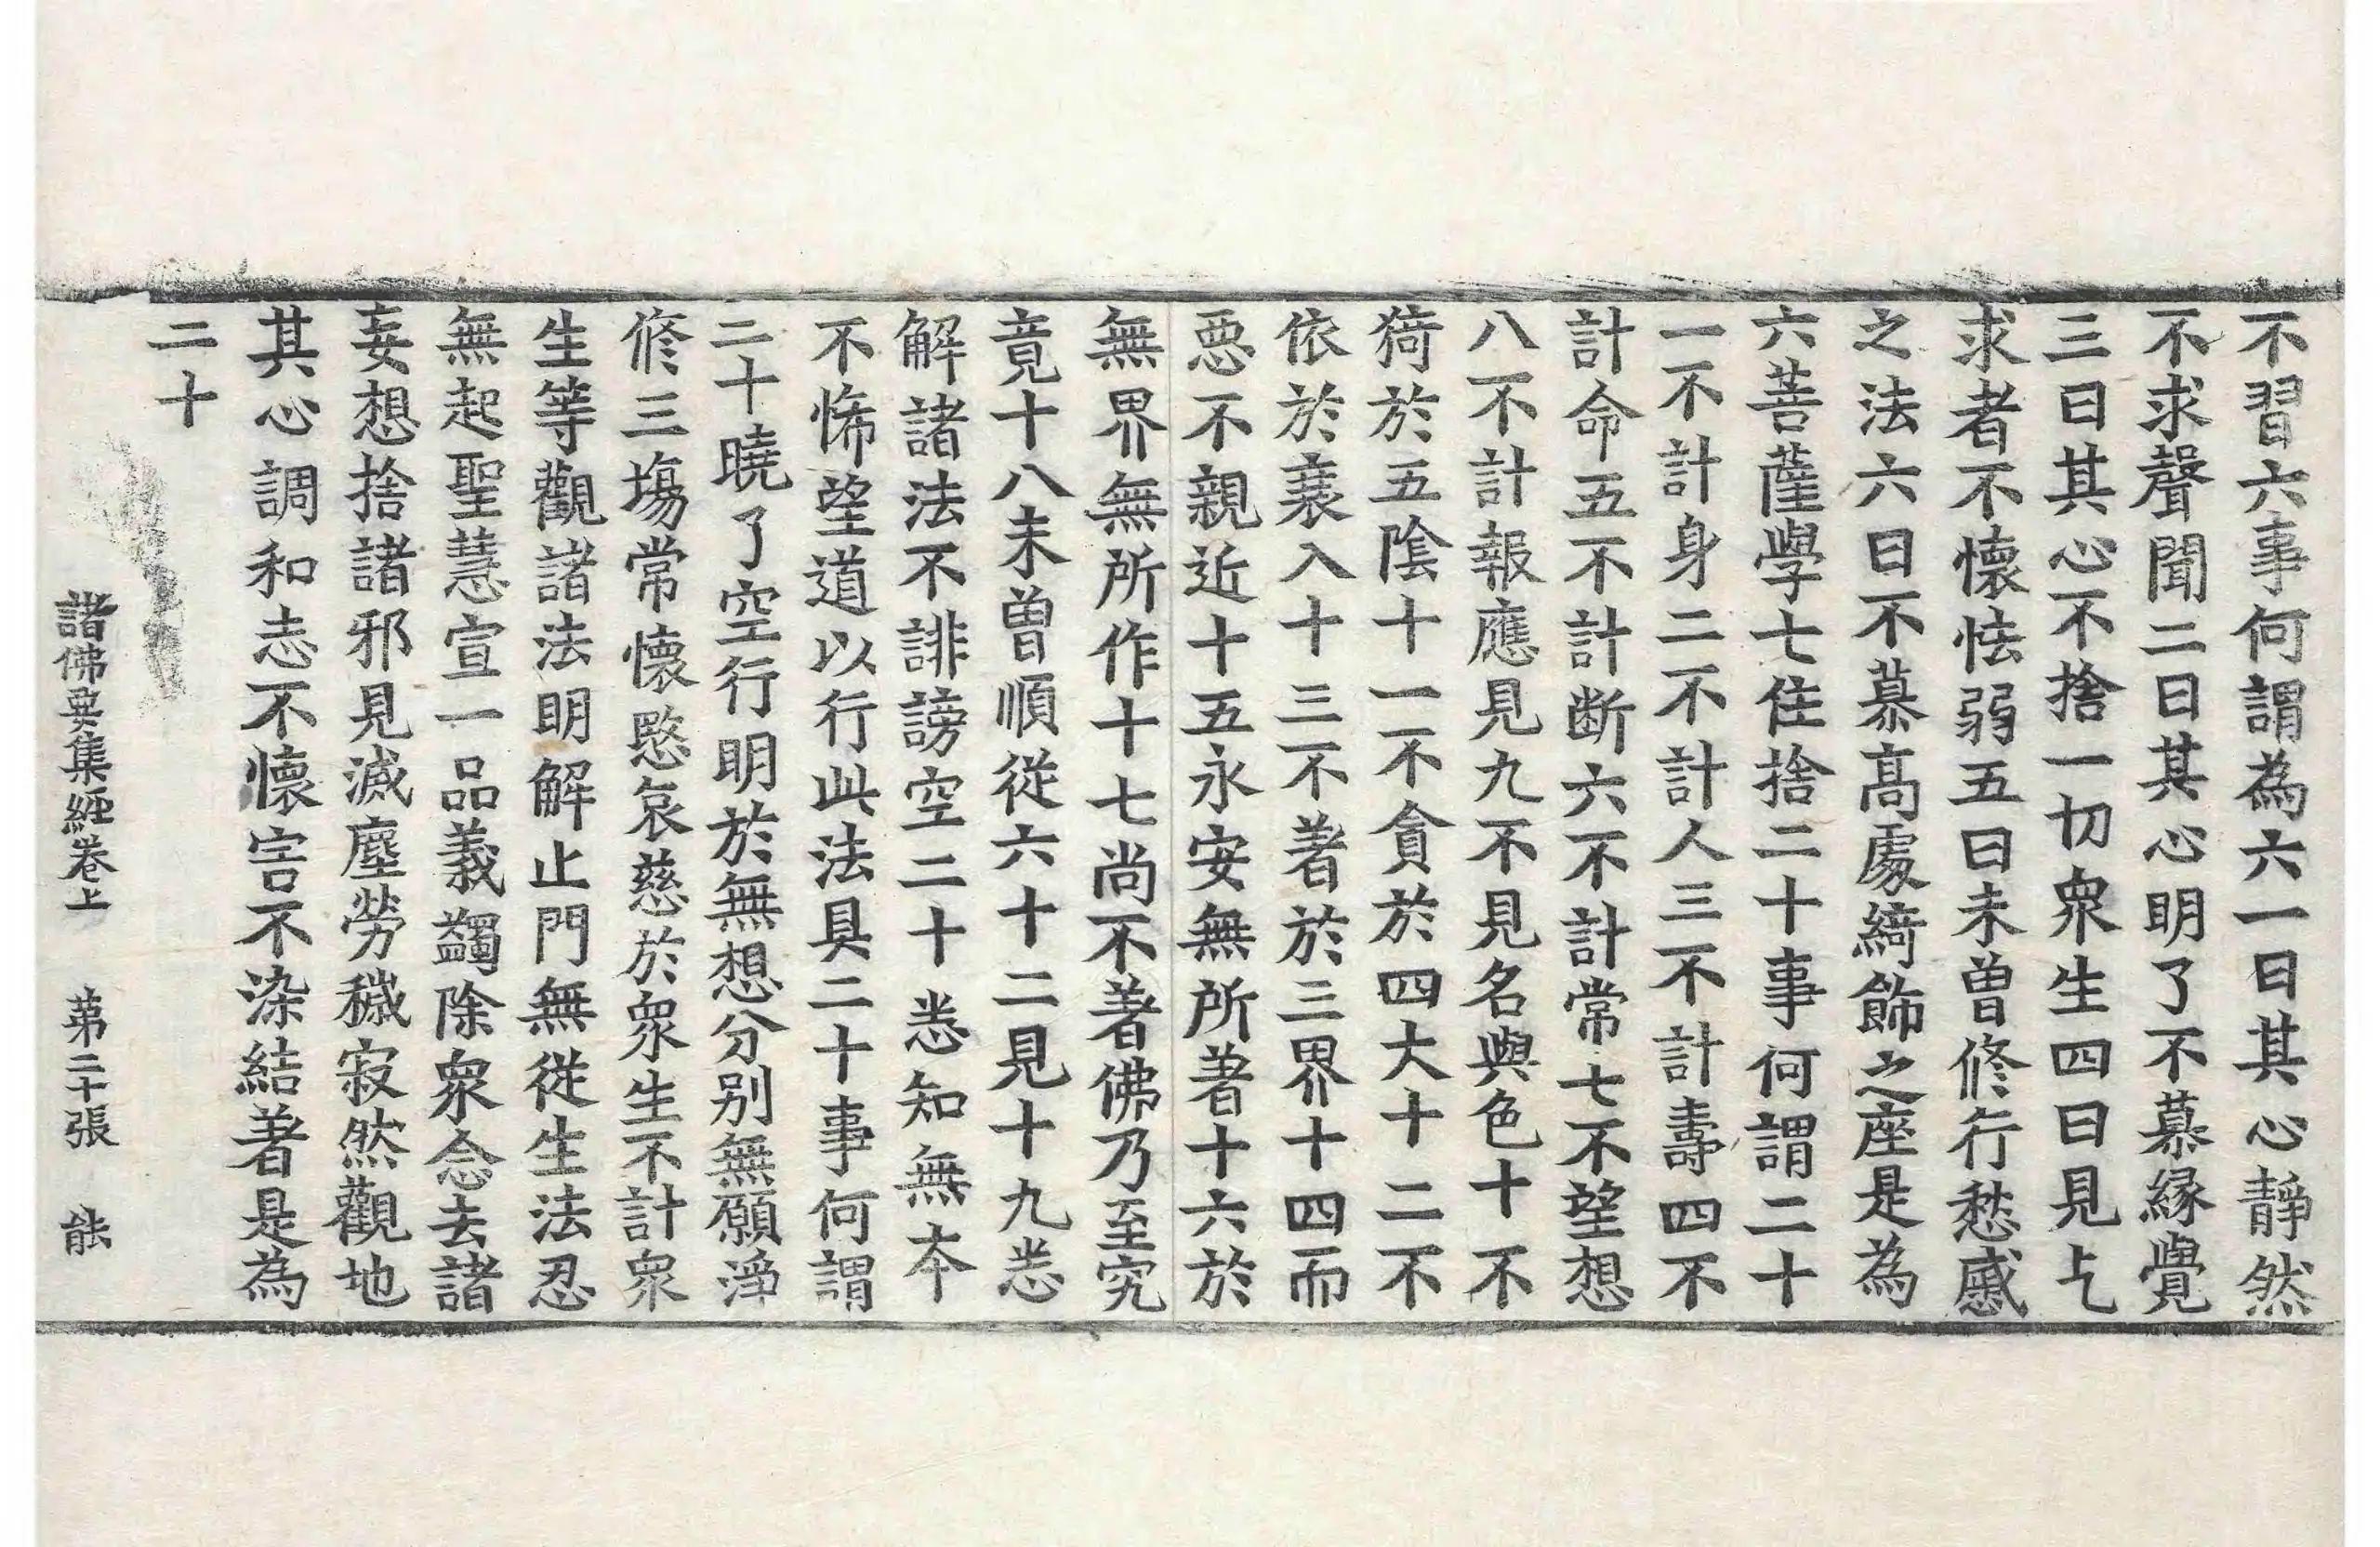 不習六事何謂為六一曰其心靜然
不求聲聞二曰其心明了不慕縁覺
三曰其心不捨一切衆生四曰見乞
求者不懷怯弱五曰未曽修行愁慼
之法六曰不慕髙處綺飾之座是為
六菩薩學七住捨二十事何謂二十
一不計身二不計人三不計壽四不
計命五不計断六不計常七不望想
八不計報應見九不見名與色十不
猗於五陰十一不貪於四大十二不
依於衰入十三不著於三界十四而
惡不親近十五永安無所著十六於
無界無所作十七尚不著佛乃至究
竟十八未曽順從六十二見十九悉
解諸法不誹謗空二十悉知無本
不悕望道以行此法具二十事何謂
二十曉了空行明於無想分别無願淨
修三場常懷愍哀慈於衆生不計衆
生等觀諸法明解止門無從生法忍
無起聖慧宣一品義蠲除衆念去諸
妄想捨諸邪見滅塵勞穢寂然觀地
其心調和志不懷害不染結著是為
二十
諸佛要集經卷上 苐二十張 能